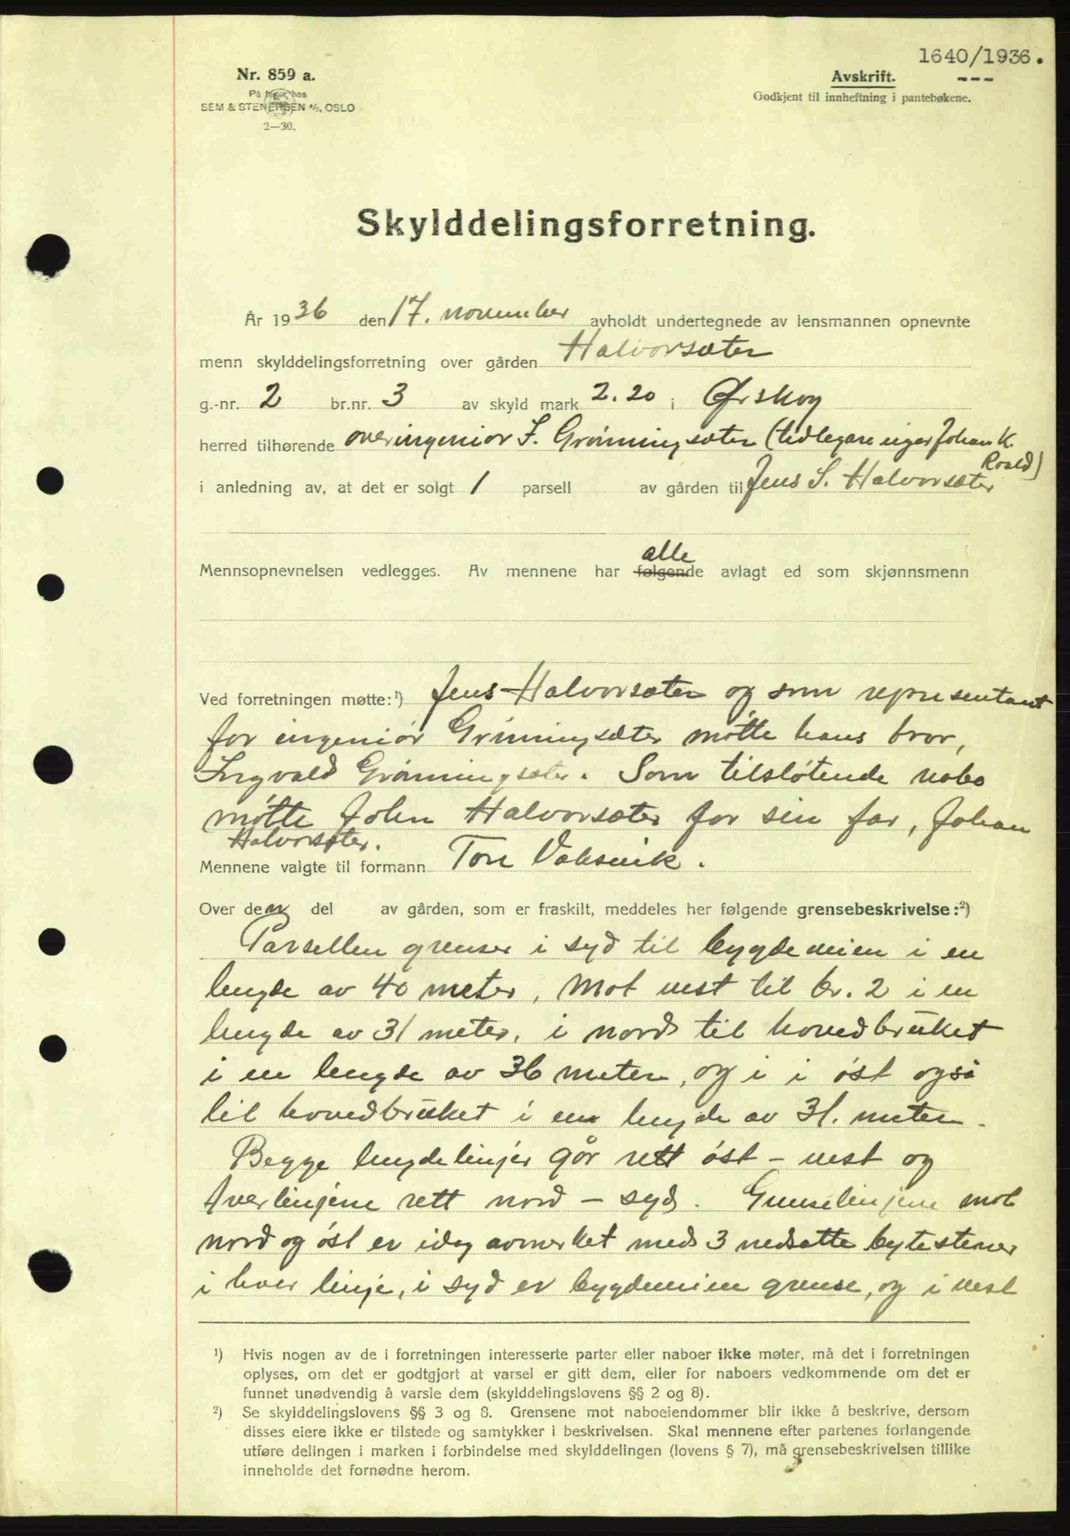 1640/1936.
Nr. 859 a.
SEM & STENERSEN A/S, OSLO
2—30.
Avskrift.
Godkjent til innheftning i pantebøkene.
Skylddelingsforretning.
År 1936 den 17. november avholdt undertegnede av lensmannen opnevnte
menn skylddelingsforretning over gården Halvorsæter
g.-nr. 2 br.nr. 3 av skyld mark 2.20 i Ørskog
herred tilhørende overingeniør S. Grønningsæter (tidlegare eigar Johan K. Roald)
i anledning av, at det er solgt 1 parsell av gården til Jens S. Halvorsæter
alle
Mennsopnevnelsen vedlegges. Av mennene har følgende avlagt ed som skjønnsmenn
Ved forretningen møtte:¹) Jens Halvorsæter og som representant
for ingeniør Grønningsæter møtte hans bror,
Ingvald Grønningsæter. Som tilstøtende nabo
møtte John Halvorsæter for sin far, Johan
Halvorsæter.
Mennene valgte til formann Tore Vaksvik.
Over den del av gården, som er fraskilt, meddeles her følgende grensebeskrivelse:²)
Parsellen grenser i syd til bygdeveien i en
lengde av 40 meter, mot vest til br. 2 i en
lengde av 31 meter, i nord til hovedbruket
i en lengde av 36 meter, og i i øst også
til hovedbruket i en lengde av 31. meter.
Begge lengdelinjer går rett øst - vest og
tverlinjene rett nord - syd. Grenselinjene mot
nord og øst er idag avmerket med 3 nedsatte bytestener
i hver linje, i syd er bygdeveien grense, og i vest
¹) Hvis nogen av de i forretningen interesserte parter eller naboer ikke møter, må det i forretningen
oplyses, om det er godtgjort at varsel er gitt dem, eller for naboers vedkommende om det er
funnet unødvendig å varsle dem (skylddelingslovens §§ 2 og 8).
²) Se skylddelingslovens §§ 3 og 8. Grensene mot naboeiendommer blir ikke å beskrive, dersom
disses eiere ikke er tilstede og samtykker i beskrivelsen. Skal mennene efter partenes forlangende
utføre delingen i marken i forbindelse med skylddelingen (lovens § 7), må grensebeskrivelsen tillike
inneholde det fornødne herom.